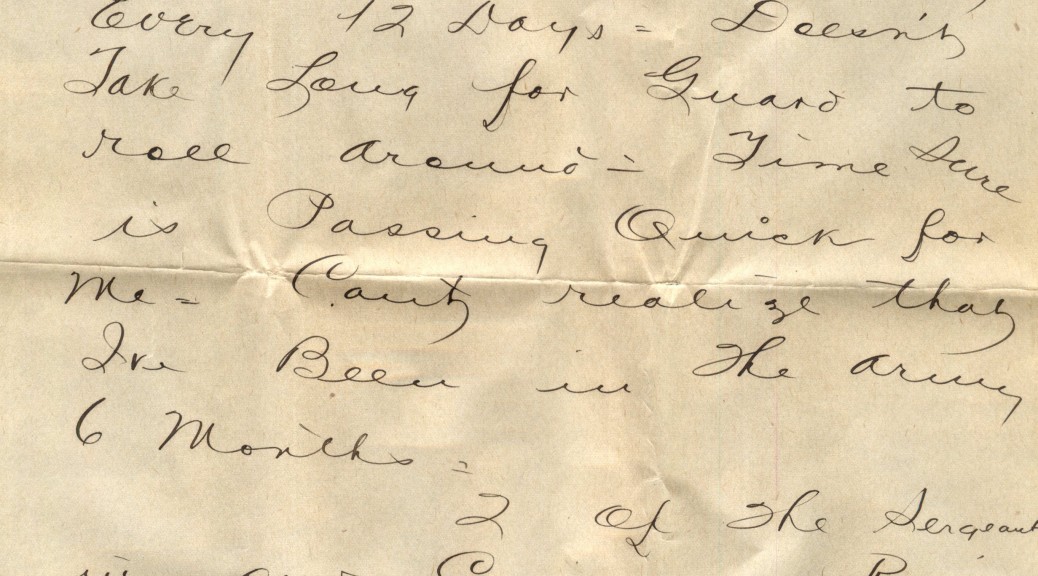 Every 12 Days = Doesn't
Take Long for Guard to
roll around = Time Sure
is Passing Quick for
Me = Can't realize that
I've Been in The Army
6 Months =
2 Of The Sergeant